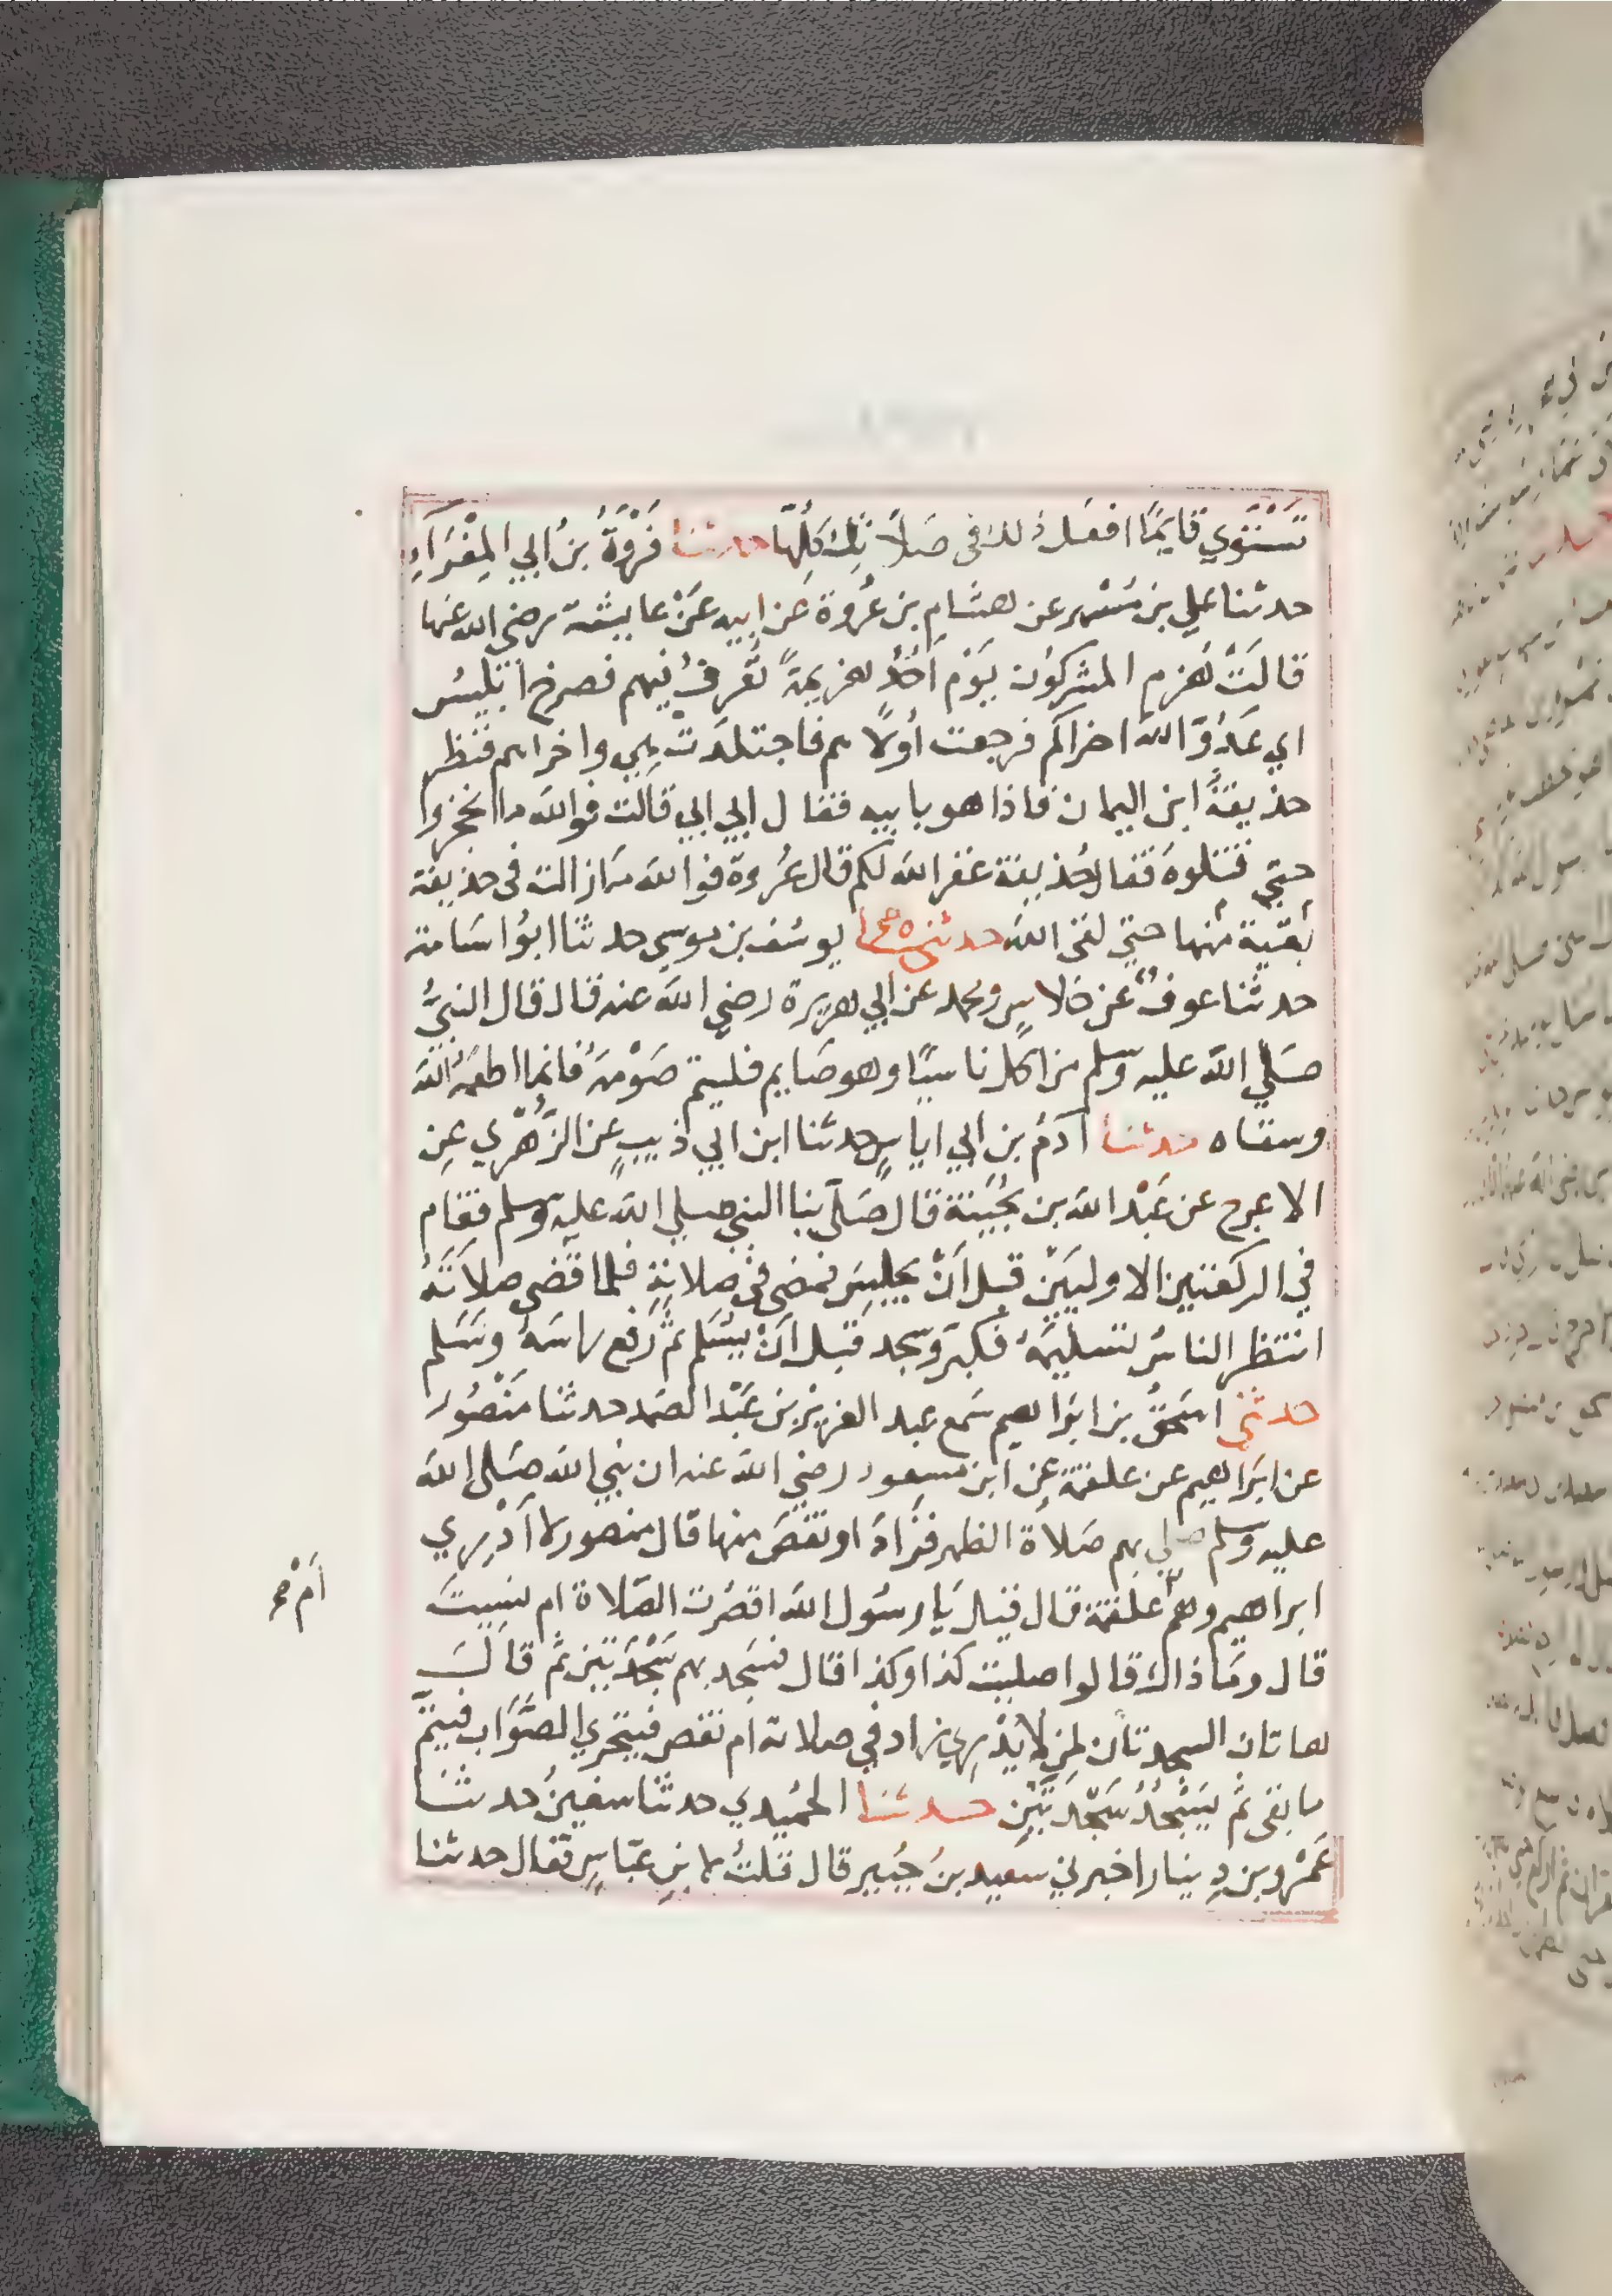 تَسْتَوِي قايمًا افعَل ذلك في صَلاَتِكَ كُلِّها حدثنا فَرْوَةُ بنُ ابي المِغْرَاءِ
حدثنا علي بن مُسْهر عن هشام بن عُرْوة عن ابيه عَنْ عايشة رضي الله عنها
قالَتْ هُزم المشركون يَوْم اُحُدٍ هزيمةً تُعْرفُ فيهم فصرخ ابْليسُ
اي عَدُوَّ الله اخراكم فرجعت أُولاهم فاجتلدَتْ هِي واخراهم فنظر
حذيفةُ ابن اليمان فاذا هو بابيه فقال ابي ابي قالت فوالله ما انحجزوا
حتي قتلوهُ فقال حُذيفة غفر الله لكم قال عُروة فوالله مَا زالت في حذيفة
بقية منها حتي لقي الله حدثني يوسُف بن موسي حدثنا ابُو اسَامة
حدثنا عوفٌ عن خلاسٍ ومحمد عن ابي هريرة رضي الله عنه قال قال النبيُّ
صَلي الله عليه وسلم من اكل ناسيًا وهو صَايم فليتم صَوْمَهُ فانما اطعمهُ الله
وسقاه حدثنا آدمُ بن ابي اياسٍ حدثنا ابن ابي ذيبٍ عن الزُّهْري عن
الاعرج عن عَبْد الله بن بُحَيْنة قال صَلّي بنا النبي صلي الله عليه وسلم فقام
في الركعتين الاوليَيْن قبل اَنْ يجلِسَ فمضى في صلاتِهِ فلما قضى صلاَتَهُ
انتظر الناسُ تسليمَهُ فكبر وَسجد قبل اَنْ يُسَلم ثم رَفع راسَهُ وسَلم
حدثني اسحقُ بن ابرَاهيم سَمع عبد العزيز بن عَبْد الصمد حدثنا مَنْصُور
عن ابرَاهيم عن علقمة عن ابن مسعود رضي الله عنه ان نبي الله صَلى الله
عليه وسلم صلي بهم صَلاَة الظهر فزَادَ او نقصَ منها قال منصور لا اَدْري
ابراهيم وهم ام علقمة قال قيل يَا رسُول الله اقصُرت الصَّلاة ام نسِيتَ
ام صح
قال ومَا ذاك قالوا صليت كذا وكذا قال فسَجد بهم سَجْدَتين ثم قالَ
هاتان السجدتان لمن لا يَدْري زاد في صلاته ام نقص فيتحري الصَّوَاب فيتمّ
ما بقي ثم يَسْجُدُ سَجْدَتَيْن حدثنا الحُمَيدي حدثنا سفين حدثنا
عَمْرو بن دِينار اخبرني سَعيد بنُ جُبَير قال قلتُ لابن عبّاسٍ فقال حدثنا